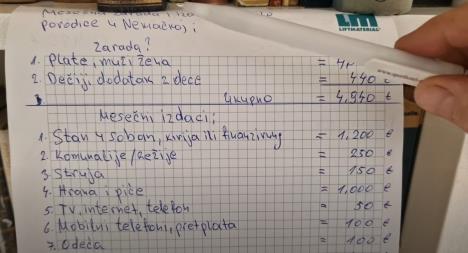 LM
LIFTMATERIAL
porodice u Nemačkoj;
Zarada?
1. Plate, muž i žena =
2. Dečiji dodatak 2 dece = 440 €
ukupno = 4,940 €
mesečni izdaci;
1. Stan 4 soban, kirija ili finanzirung = 1,200 €
2. Komunalije/režije = 250 €
3. Struja = 150 €
4. Hrana i piće = 1,000 €
5. TV, internet, telefon = 50 €
6. Mobilni telefoni, pretplata = 100 €
7. Odeća = 100 €